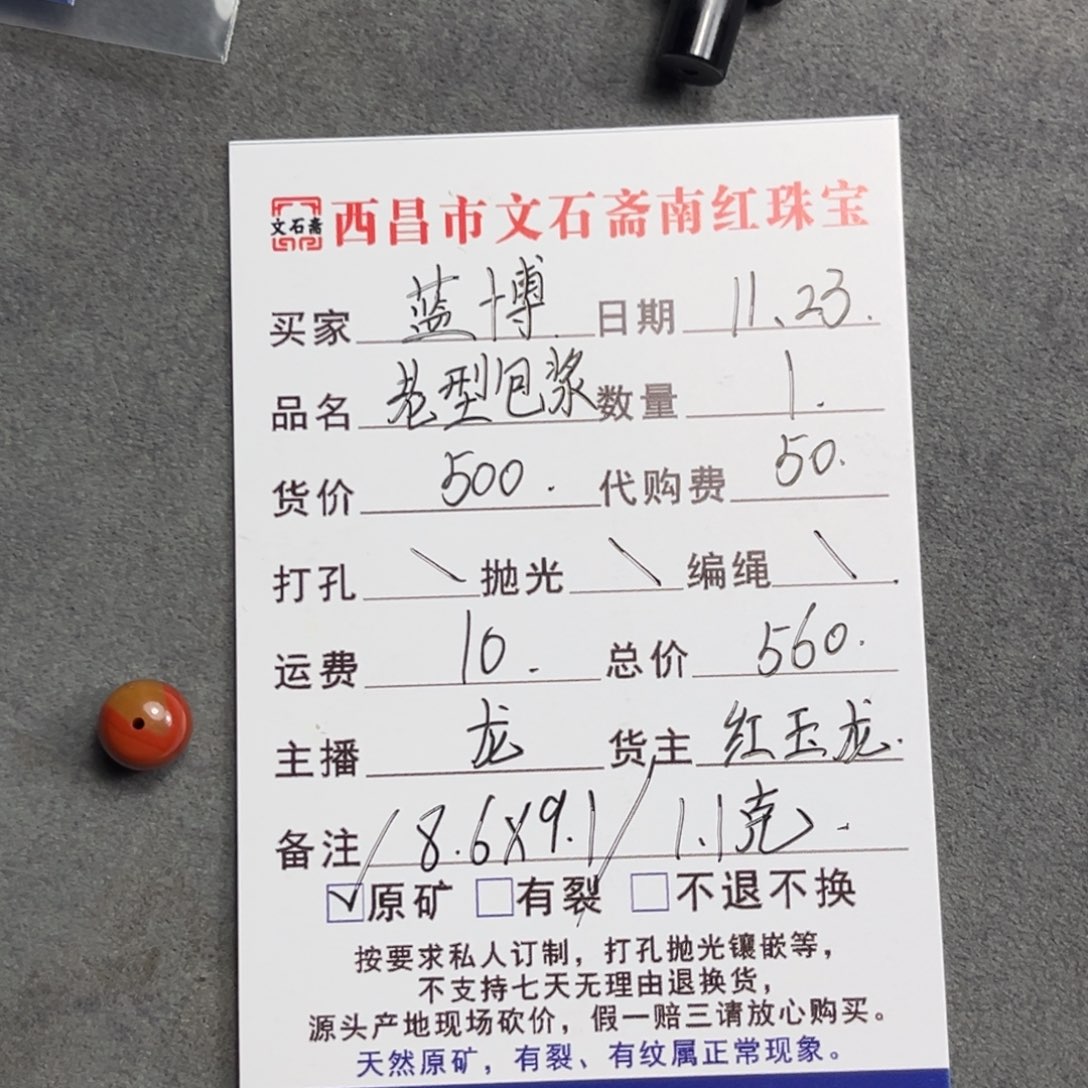 文石斋 西昌市文石斋南红珠宝
买家 蓝博 日期 11.23.
品名 老型包浆 数量 1.
货价 500. 代购费 50.
打孔 \ 抛光 \ 编绳 \
运费 10. 总价 560.
主播 龙 货主 红玉龙.
备注 / 8.6X9.1 / 1.1克.
☑原矿 □有裂 □不退不换
按要求私人订制，打孔抛光镶嵌等，
不支持七天无理由退换货，
源头产地现场砍价，假一赔三请放心购买。
天然原矿，有裂、有纹属正常现象。